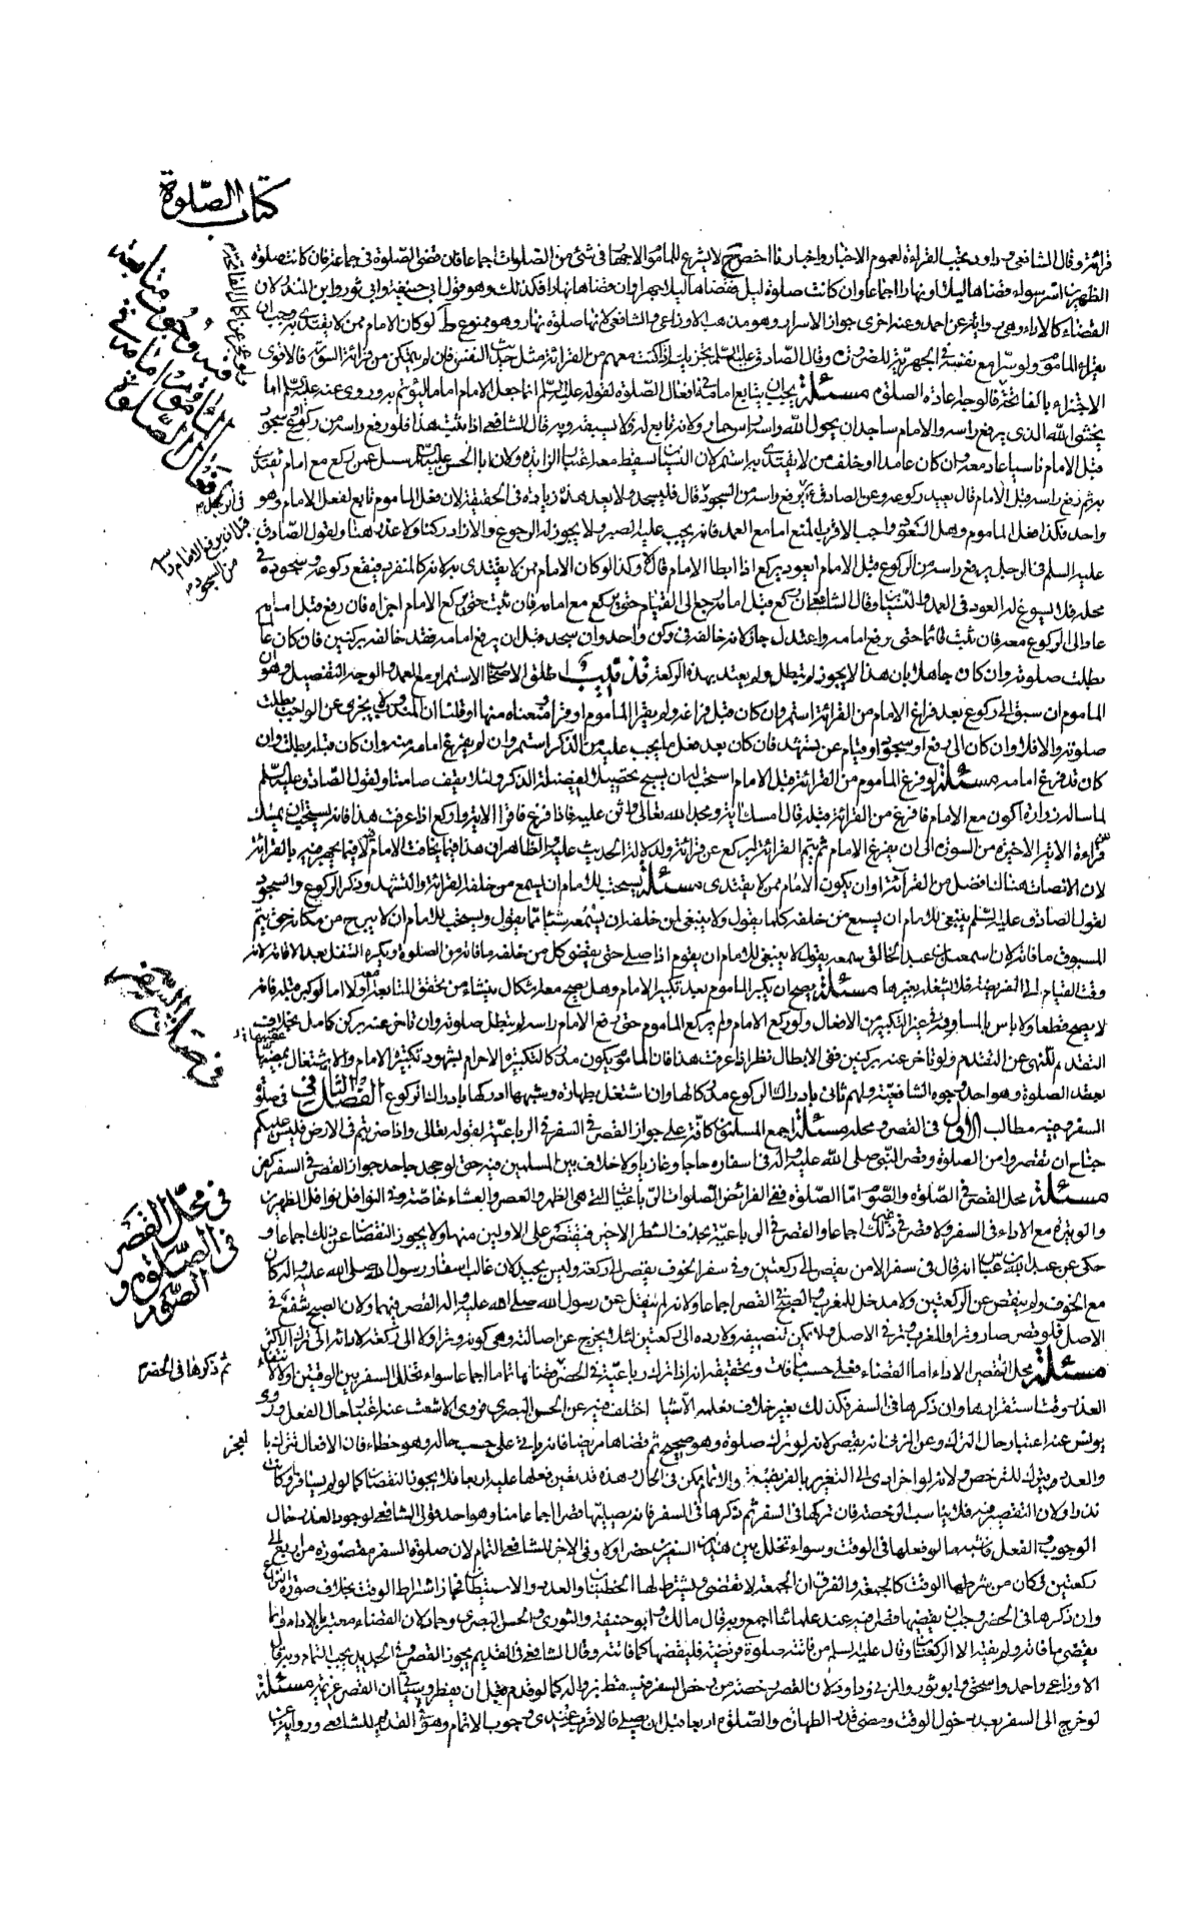 كتاب الصّلوة
وقال الشافعي وداود يجب القراءة لعموم الاخبار واخبارنا اخص لا يشرع للماموم الاجهار في شئ من الصلوات اجماعا فان قضى الصّلوة في جماعة فان كانت صلوة
الظهرين اسر سواء قضاها ليلا او نهارا اجماعا وان كانت صلوة ليل فقضاها ليلا جهر وان قضاها نهارا فكذلك وهو قول ابي حنيفة وابي ثور وابن المنذر لان
القضاء كالاداء وهي رواية عن احمد وعنه اخرى جواز الاسرار وهو مذهب الاوزاعي والشافعي لانها صلوة نهار وهو ممنوع لو كان الامام ممن لا يقتدى به وجب ان
يقراء الماموم ولو سرا مع نفسه في الجهرية للضرورة وقال الصادق عليه السلم يجزيك اذا كنت معهم من القرائة مثل حديث النفس فان لم يتمكن من قرائة السورة فالاقوى
الاجتزاء بالفاتحة مسئلة يجب ان يتابع امامه في افعال الصّلوة لقوله عليه السلم انما جعل الامام اماما ليؤتم به وروى عنه عليه السلم اما
يخشى الذي يرفع راسه والامام ساجد ان يحول الله راسه راس حمار ولانه تابع له فلا يسبقه وبه قال الشافعي اذا ثبت هذا فلو رفع راسه من ركوع او سجود
قبل الامام ناسيا عاد معه وان كان عامدا او خلف من لا يقتدى به استمر لان النسيان اسقط معه اعتبار الزيادة ولان ابا الحسن عليه السلم سئل عمن ركع مع امام يقتدى
به ثم رفع راسه قبل الامام قال يعيد ركوعه وعن الصادق
واحد فكذا فعل الماموم وهل العود واجب الاقرب المنع اما مع العمد فانه يجب عليه الصبر ولا يجوز له الرجوع والا زاد ركنا ولا عذر هنا ولقول الصادق
عليه السلم في الرجل يرفع راسه من الركوع قبل الامام ايعود يركع اذا ابطا الامام قال لا وكذا لو كان الامام ممن لا يقتدى به لانه كالمنفرد فيقع ركوعه وسجوده في
محله فلا يسوغ له العود في العمد والنسيان وقال الشافعي ان ركع قبل امامه رجع الى القيام حتى يركع مع امامه فان ثبت حتى يركع الامام اجزاه فان رفع قبل امامه
عاد الى الركوع معه فان ثبت قائما حتى رفع امامه واعتدل جاز لانه خالفه في ركن واحد وان سجد قبل ان يرفع امامه فقد خالفه بركنين فان كان عالما
بطلت صلوته وان كان جاهلا بان هذا لا يجوز لم تبطل ولم يعتد بهذه الركعة تذنيب اطلق الاصحاب الاستمرار مع العمد والوجه التفصيل وهو ان
الماموم ان سبق الى ركوع بعد فراغ الامام من القرائة استمر وان كان قبل فراغه ولم يقرا الماموم او قرا ومنعناه منها او قلنا ان المندوب لا يجزى عن الواجب بطلت
صلوته والا فلا وان كان الى رفع او سجود او قيام عن تشهد فان كان بعد فعل ما يجب عليه من الذكر استمر وان لم يفرغ امامه منه وان كان قبله بطلت وان
كان قد فرغ امامه مسئلة لو فرغ الماموم من القرائة قبل الامام استحب له ان يسبح تحصيلا لفضيلة الذكر ولئلا يقف صامتا ولقول الصادق عليه السلم
لما ساله زرارة اكون مع الامام فافرغ من القرائة قبله قال امسك اية ومجد الله تعالى واثن عليه فاذا فرغ فاقرا الاية واركع اذا عرفت هذا فانه يستحب ان يمسك
قراءة الاية الاخيرة من السورة الى ان يفرغ الامام ثم يتم القرائة ليركع عن قرائة ولدلالة الحديث عليه والظاهر ان هذا فيما يخافت الامام لا فيما يجهر فيه بالقرائة
لان الانصات هنا افضل من القرآءة او ان يكون الامام ممن لا يقتدى به مسئلة يستحب للامام ان يسمع من خلفه القرائة والتشهد وذكر الركوع والسجود
لقول الصادق عليه السلم ينبغي للامام ان يسمع من خلفه كلما يقول ولا ينبغي لمن خلفه ان يسمعه شيئا مما يقول ويستحب للامام ان لا يبرح من مكانه حتى يتم
المسبوق ما فاته لان اسمعيل بن عبد الخالق سمعه يقول لا ينبغي للامام ان يقوم اذا صلى حتى يقضى كل من خلفه ما فاته من الصلوة ويكره التنفل بعد الاقامة لانه
وقت القيام الى الفريضة فلا يشتغل بغيرها مسئلة يصح ان يكبر الماموم بعد تكبير الامام وهل يصح معه اشكال ينشاء من تحقق المتابعة معه اولا اما لو كبر قبله فانه
لا يصح قطعا ولا باس بالمساوقة في غير التكبير من الافعال ولو ركع الامام ولم يركع الماموم حتى رفع الامام راسه لم تبطل صلوته وان تاخر عنه بركن كامل بخلاف
التقدم للنهي عن التقدم ولو تاخر عنه بركنين ففي الابطال نظر اذا عرفت هذا فان الماموم يكون مدركا لتكبيرة الاحرام بشهود تكبيرة الامام والاشتغال
بعقد الصلوة وهو احد وجوه الشافعية ولهم ثانى بادراك الركوع مدركا لها وان اشتغل بطهارة وشبهها ادركها بادراك الركوع الفصل الثالث في صلوة
السفر وفيه مطالب الاول في القصر ومحله مسئلة اجمع المسلمون كافة على جواز القصر في السفر في الرباعية لقوله تعالى واذا ضربتم في الارض فليس عليكم
جناح ان تقصروا من الصلوة وقصر النبي صلى الله عليه واله في اسفاره حاجا وغازيا ولا خلاف بين المسلمين فيه حتى لو جحد جاحد جواز القصر في السفر كفر
مسئلة محل القصر في الصّلوة والصّوم امّا الصّلوة ففي الفرائض الصلوات الرباعيات التي هي الظهر والعصر والعشاء خاصة وفي النوافل نوافل الظهرين
والوتيرة مع الاداء في السفر ولا قصر في غير ذلك اجماعا والقصر في الرباعية بحذف الشطر الاخير فيقتصر على الاوليين منها ولا يجوز النقصان عن ذلك اجماعا و
حكى عن عبد الله بن عباس انه قال في سفر الامن يقصر الى ركعتين وفي سفر الخوف يقصر الى ركعة وليس بجيد لان غالب اسفار رسول الله صلى الله عليه واله كان
مع الخوف ولم ينقص عن الركعتين ولا مدخل للمغرب والصبح في القصر اجماعا ولانه لم ينقل عن رسول الله صلى الله عليه واله القصر فيهما ولان الصبح شفع في
الاصل فلو قصر صار وترا والمغرب وتر في الاصل ولا يمكن تنصيفه ولا رده الى ركعتين لئلا يخرج عن اصالته وهي كونه وترا ولا الى ركعة لادائه الى ترك الاكثر
مسئلة محل التقصير الاداء اما القضاء فعلى حسب ما فات وتحقيقه انه اذا ترك رباعية في الحضر قضاها تماما اجماعا سواء تخلل السفر بين الوقتين اولا لانتفاء
العذر وقت استقرارها وان ذكرها في السفر فكذلك بغير خلاف نعلمه الا شيئا اختلف فيه عن الحسن البصري فروى الاشعث عنه اعتبار حال الفعل وروى
يونس عنه اعتبار حال الترك وعن المزني انه يقصر لانه لو ترك صلوة وهو صحيح ثم قضاها مريضا فانه ياتي على حسب حاله وهو خطاء فان الافعال تترك
والعدد يترك للترخص ولانه لو اخر ادى الى التغرير بالفريضة والاتمام يمكن في الحال وهذه قد تعين فعلها عليه اربعا فلا يجوز النقصان كما لو لم يسافر وكانت
نذرا ولان التقصير فيه فلا يناسب الرخصة فان تركها في السفر ثم ذكرها في السفر فانه يصليها قصرا اجماعا منا وهو احد قولي الشافعي لوجود العذر حال
الوجوب والفعل فاشبه ما لو فعلها في الوقت وسواء تخلل بين هذين السفرين حضر اولا وفي الاخر للشافعي التمام لان صلوة السفر مقصورة من اربع الى
ركعتين فكان من شرطها الوقت كالجمعة والفرق ان الجمعة لا تقضى ويشترط لها الخطبتان والعدد والاستيطان فجاز اشتراط الوقت بخلاف صورة النزاع
وان ذكرها في الحضر وجب ان يقضيها قصرا عند علمائنا اجمع وبه قال مالك وابو حنيفة والثوري والحسن البصري وحماد لان القضاء معتبر بالاداء وانما
يقضى ما فاته ولم يفته الا الركعتان وقال عليه السلم من فاتته صلوة فريضة فليقضها كما فاتته وقال الشافعي في القديم يجوز القصر وفي الجديد يجب التمام وبه قال
الاوزاعي واحمد واسحق وابو ثور والمزني وداود لان القصر رخصة من رخص السفر فيسقط بزواله كما لو قدم قبل ان يفطر وسياتي ان القصر عزيمة مسئلة
لو خرج الى السفر بعد دخول الوقت ومضى قدر الطهارة والصّلوة اربعا قبل ان يصلى فالاقرب عندي وجوب الاتمام وهو القديم للشافعي ورواية عن
في وجوب متابعة
الماموم امامه في
افعال الصّلوة
في الرجل
قبل ان يرفع الامام راسه
من السجود
في صلوة السفر
في محل القصر
في الصّلوة و
الصّوم
ثم ذكرها في الحضر